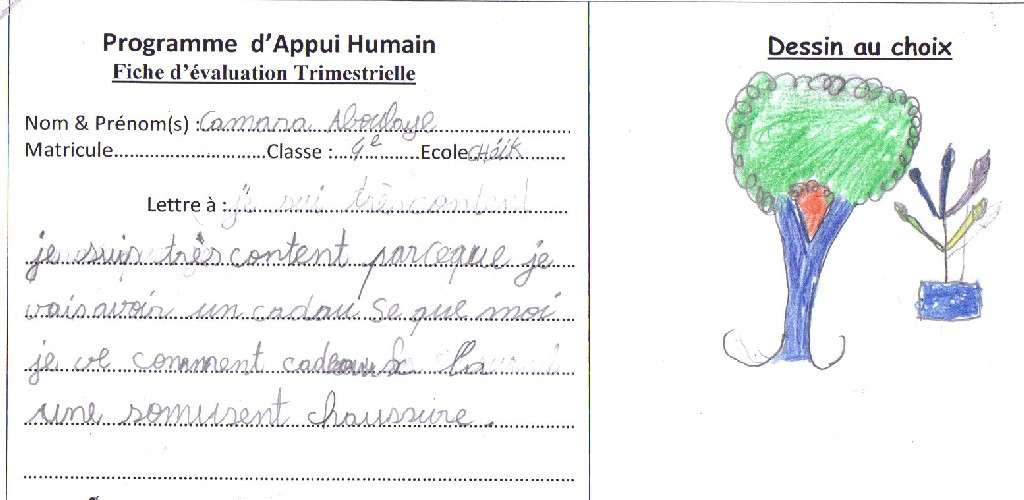 Programme d'Appui Humain
Fiche d'évaluation Trimestrielle
Nom & Prénom(s) : Camara Aboulaye
Matricule....................Classe : 4e Ecole CHÉIK
Lettre à : je sui trècontent
je suis très content parceque je
vais avoir un cadau se que moi
je ve comment cadeau la
une somusent chaussure.
Dessin au choix